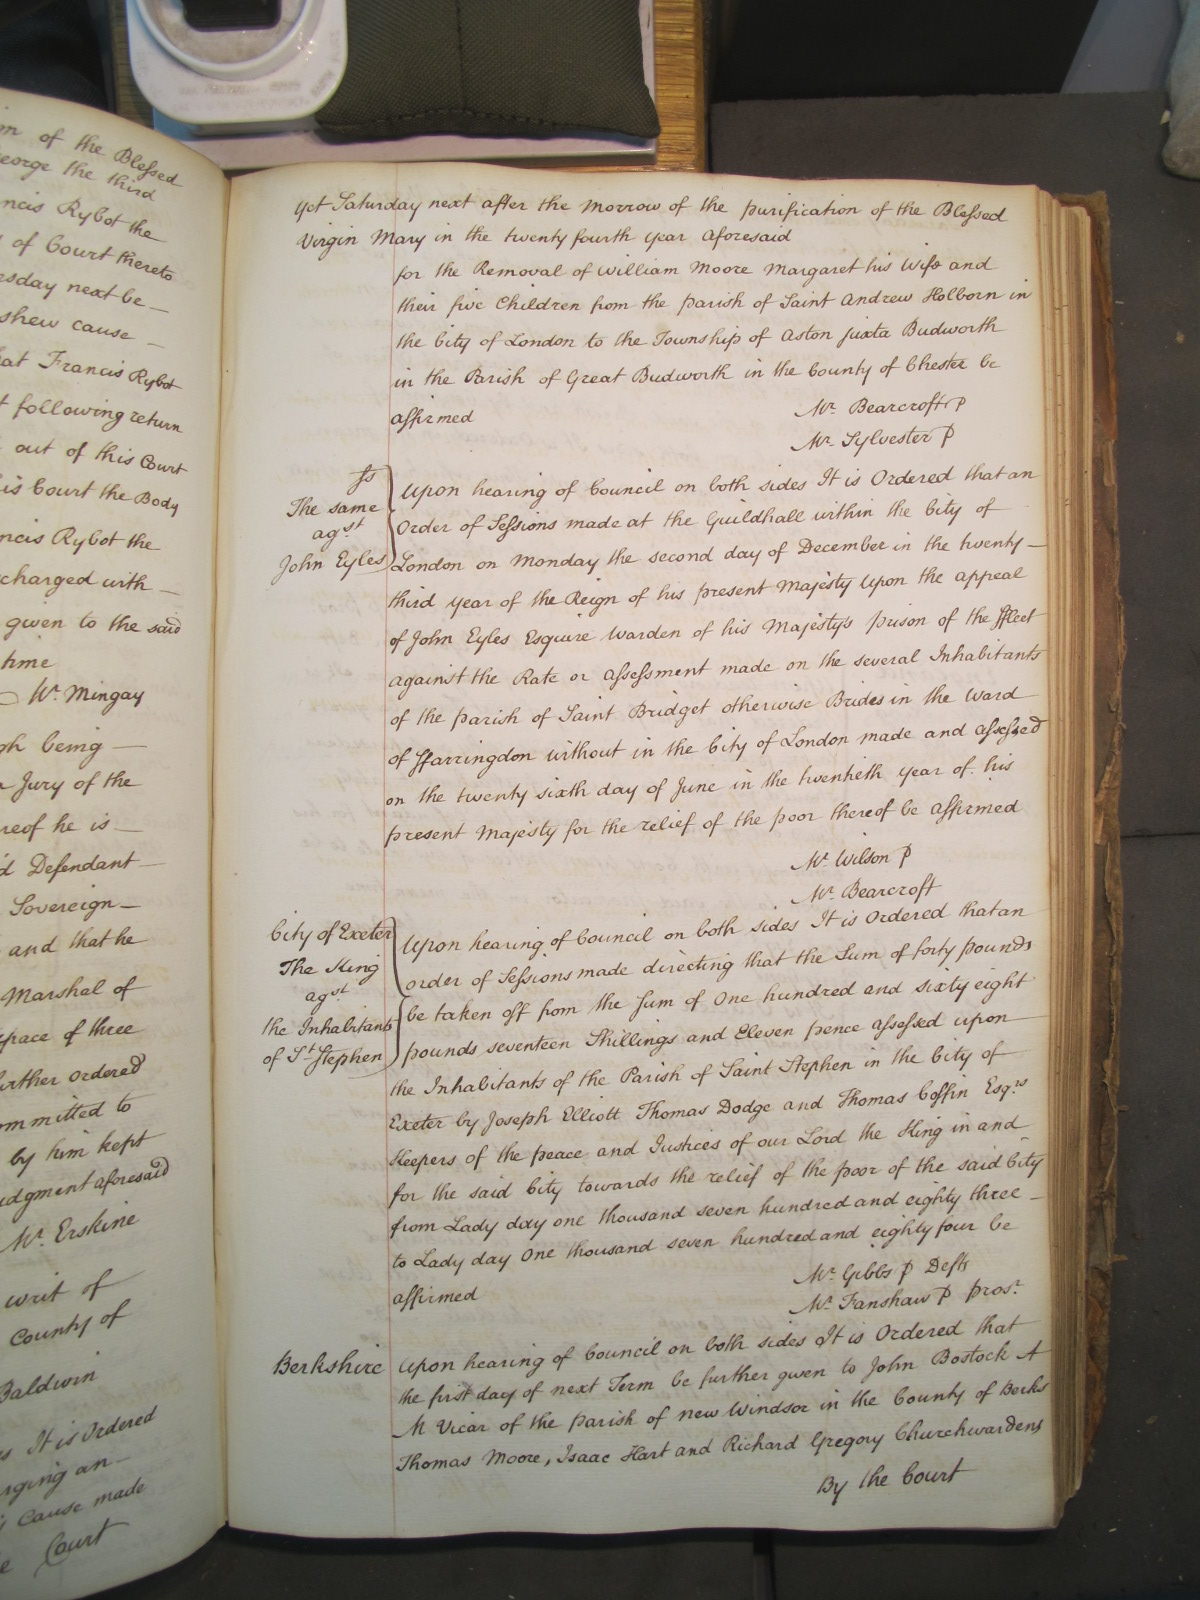 m of the Blessed
eorge the third
ncis Rybot the
of Court thereto
esday next be
shew cause
at Francis Rybot
t following return
out of this Court
is Court the Body
ncis Rybot the
charged with
given to the said
time
Mr. Mingay
gh being
a Jury of the
reof he is
d Defendant
Sovereign
and that he
Marshal of
space of three
urther ordered
ommitted to
by him kept
udgment aforesaid
Mr. Erskine
writ of
County of
Baldwin
s It is Ordered
rging an
Cause made
e Court
Yet Saturday next after the Morrow of the purification of the Blessed
Virgin Mary in the twenty fourth year aforesaid
for the Removal of William Moore Margaret his Wife and
their five Children from the parish of Saint Andrew Holborn in
the City of London to the Township of Aston juxta Budworth
in the Parish of Great Budworth in the County of Chester be
affirmed
Mr. Bearcroft P
Mr. Sylvester P
ss
The same
agst
John Eyles
Upon hearing of Council on both sides It is Ordered that an
Order of Sessions made at the Guildhall within the City of
London on Monday the second day of December in the twenty
third year of the Reign of his present Majesty Upon the appeal
of John Eyles Esquire Warden of his Majestys prison of the ffleet
against the Rate or assessment made on the several Inhabitants
of the parish of Saint Bridget otherwise Brides in the Ward
of ffarringdon without in the City of London made and assessed
on the twenty sixth day of June in the twentieth year of his
present Majesty for the relief of the poor thereof be affirmed
Mr. Wilson P
Mr. Bearcroft
City of Exeter
The King
agst
the Inhabitants
of St. Stephen
Upon hearing of Council on both sides It is Ordered that an
order of Sessions made directing that the Sum of forty pounds
be taken off from the Sum of One hundred and sixty eight
pounds seventeen Shillings and Eleven pence assessed upon
the Inhabitants of the Parish of Saint Stephen in the City of
Exeter by Joseph Elliott Thomas Dodge and Thomas Coffin Esqrs
Keepers of the peace and Justices of our Lord the King in and
for the said City towards the relief of the poor of the said City
from Lady day one thousand seven hundred and eighty three
to Lady day One thousand seven hundred and eighty four be
affirmed
Mr. Gibbs P Defts
Mr. Fanshaw P prosr.
Berkshire
Upon hearing of Council on both sides It is Ordered that
the first day of next Term be further given to John Bostock A
M Vicar of the parish of new Windsor in the County of Berks
Thomas Moore, Isaac Hart and Richard Gregory Churchwardens
By the Court